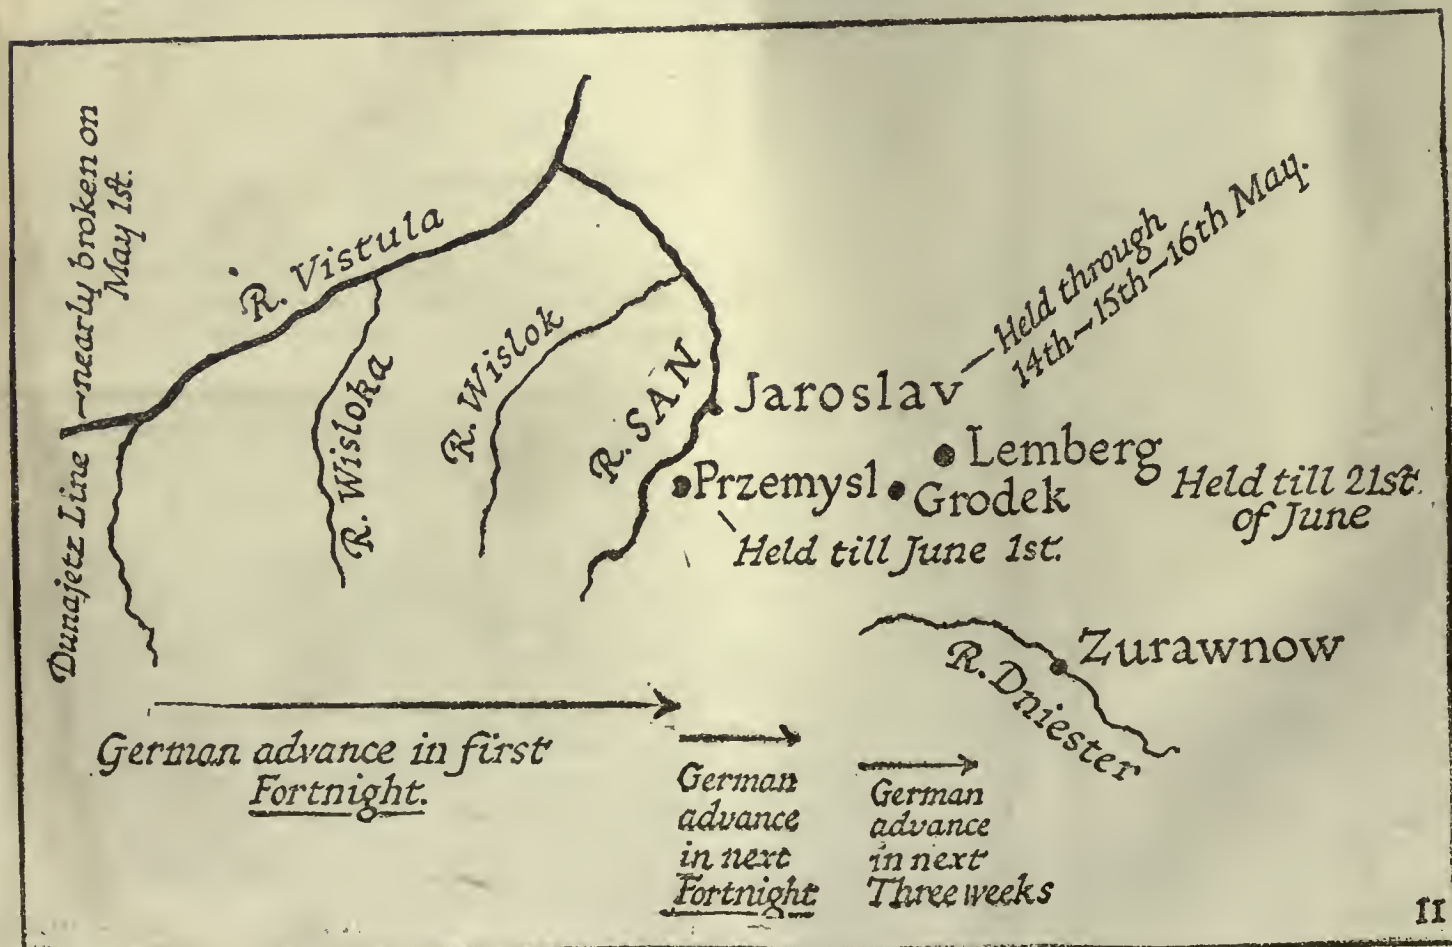 Dunajetz Line—nearly broken on
May 1st.
R. Vistula
R. Wisloka
R. Wislok
R. SAN
Jaroslav
Held through
14th—15th—16th May.
Lemberg
Przemysl
Grodek
Held till 21st.
of June
Held till June 1st.
Zurawnow
R. Dniester
German advance in first
Fortnight.
German
advance
in next
Fortnight
German
advance
in next
Three weeks
II